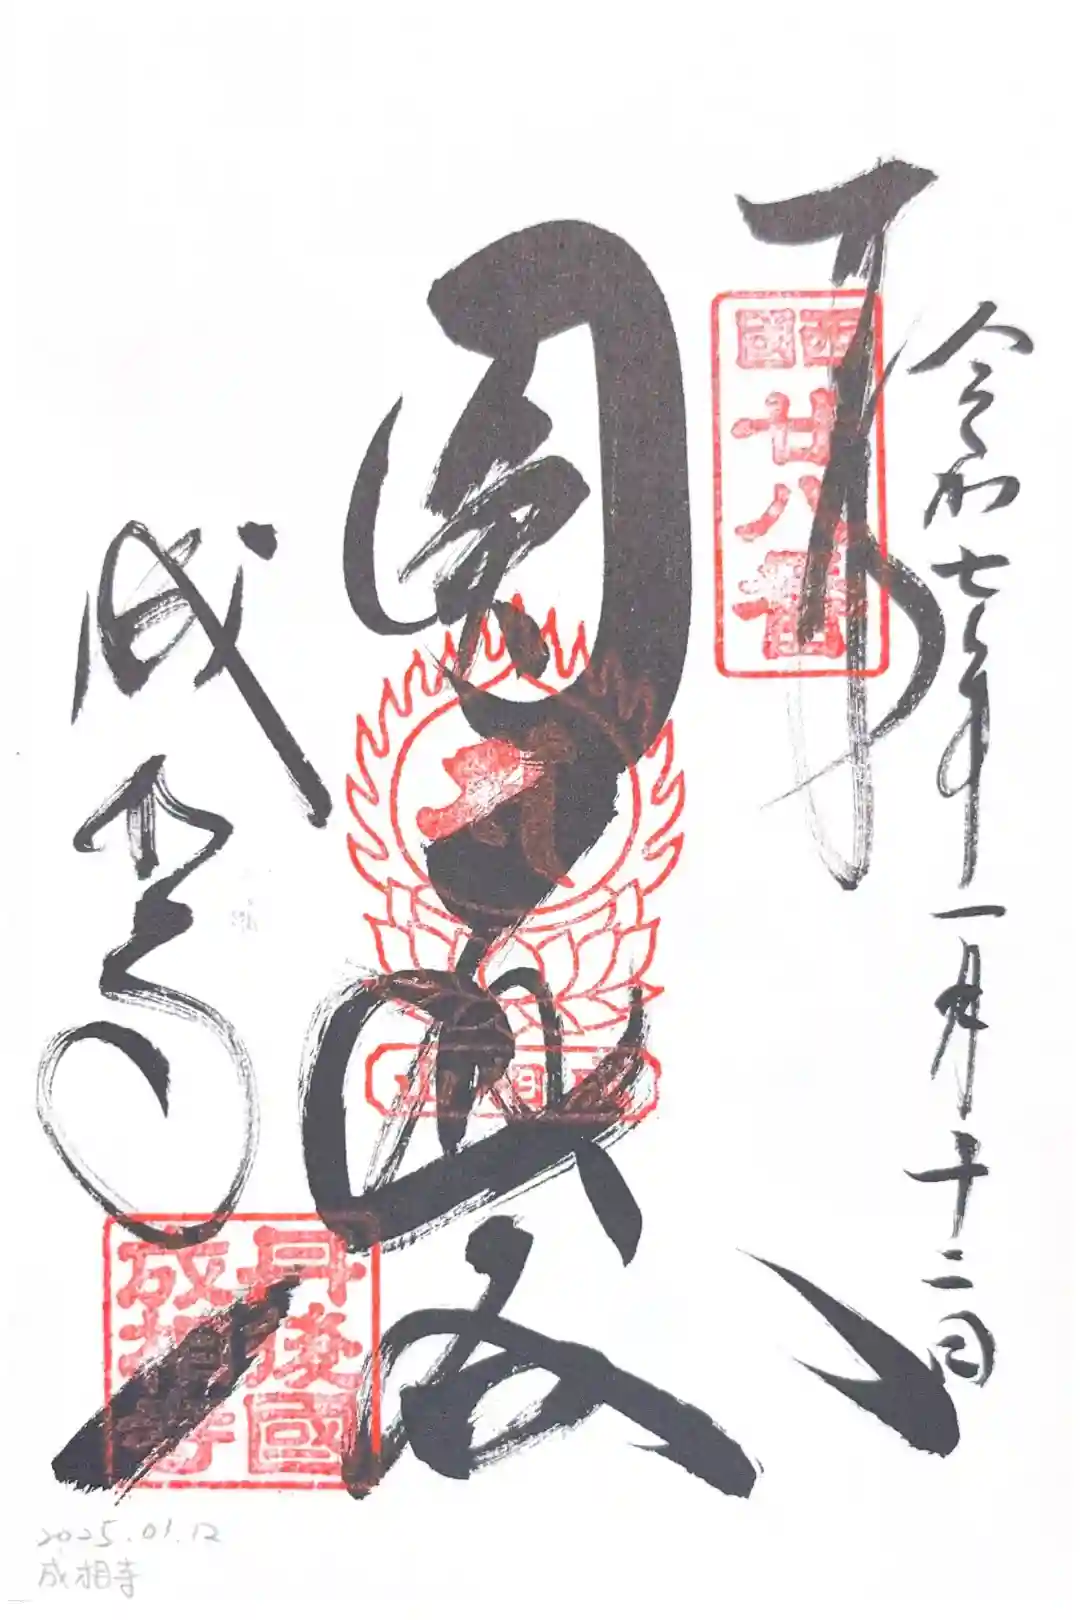 令和七年一月十二日
奉拝
西國
廿八番
圓通殿
成相山
成相寺
丹後國
成相寺
2025.01.12
成相寺